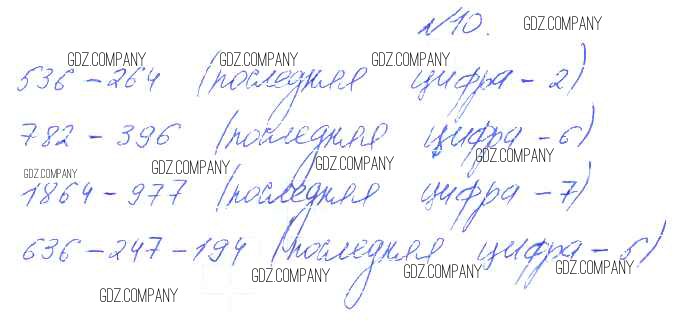 №10. GDZ.COMPANY
GDZ.COMPANY GDZ.COMPANY GDZ.COMPANY
536 - 264 (последняя цифра - 2)
782 - 396 (последняя цифра - 6)
GDZ.COMPANY GDZ.COMPANY GDZ.COMPANY GDZ.COMPANY
1864 - 977 (последняя цифра - 7)
636 - 247 - 194 (последняя цифра - 5)
GDZ.COMPANY GDZ.COMPANY GDZ.COMPANY GDZ.COMPANY